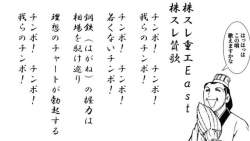 はっはっは
この唄
歌えますかな
株スレ重工East
株スレ賛歌
チンポ! チンポ!
若くないチンポ!
チンポ! チンポ!
我らのチンポ!
鋼鉄(はがね)の握力は
相場を駆け巡り
理想のチャートが勃起する
チンポ! チンポ!
我らのチンポ!